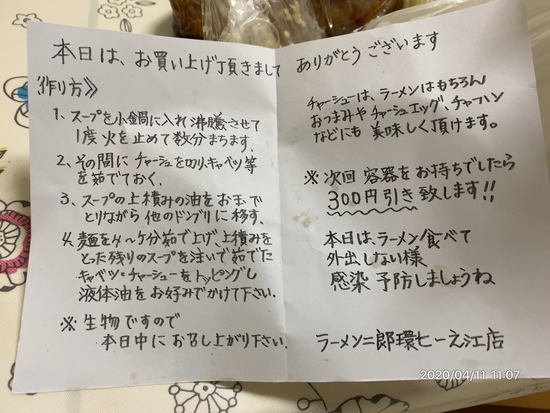 本日は、お買い上げ頂きまして
《作り方》
1、スープを小鍋に入れ沸騰させて
1度火を止めて数分まちます。
2、その間にチャーシュを切り、キャベツ等
を茹でておく、
3、スープの上積みの油をお玉で
とりながら他のドンブリに移す、
4、麺を4〜5分茹で上げ、上積みを
とった残りのスープを注いで茹でた
キャベツ・チャーシューをトッピングし
液体油をお好みでかけて下さい。
※ 生物ですので
本日中にお召し上がり下さい、
ありがとうございます
チャーシューは、ラーメンはもちろん
おつまみやチャーシュエッグ、チャーハン
などにも美味しく頂けます。
※ 次回容器をお持ちでしたら
300円引き致します!!
本日は、ラーメン食べて
外出しない様
感染予防しましょうね
ラーメン二郎環七一之江店
2020/04/11 11:07